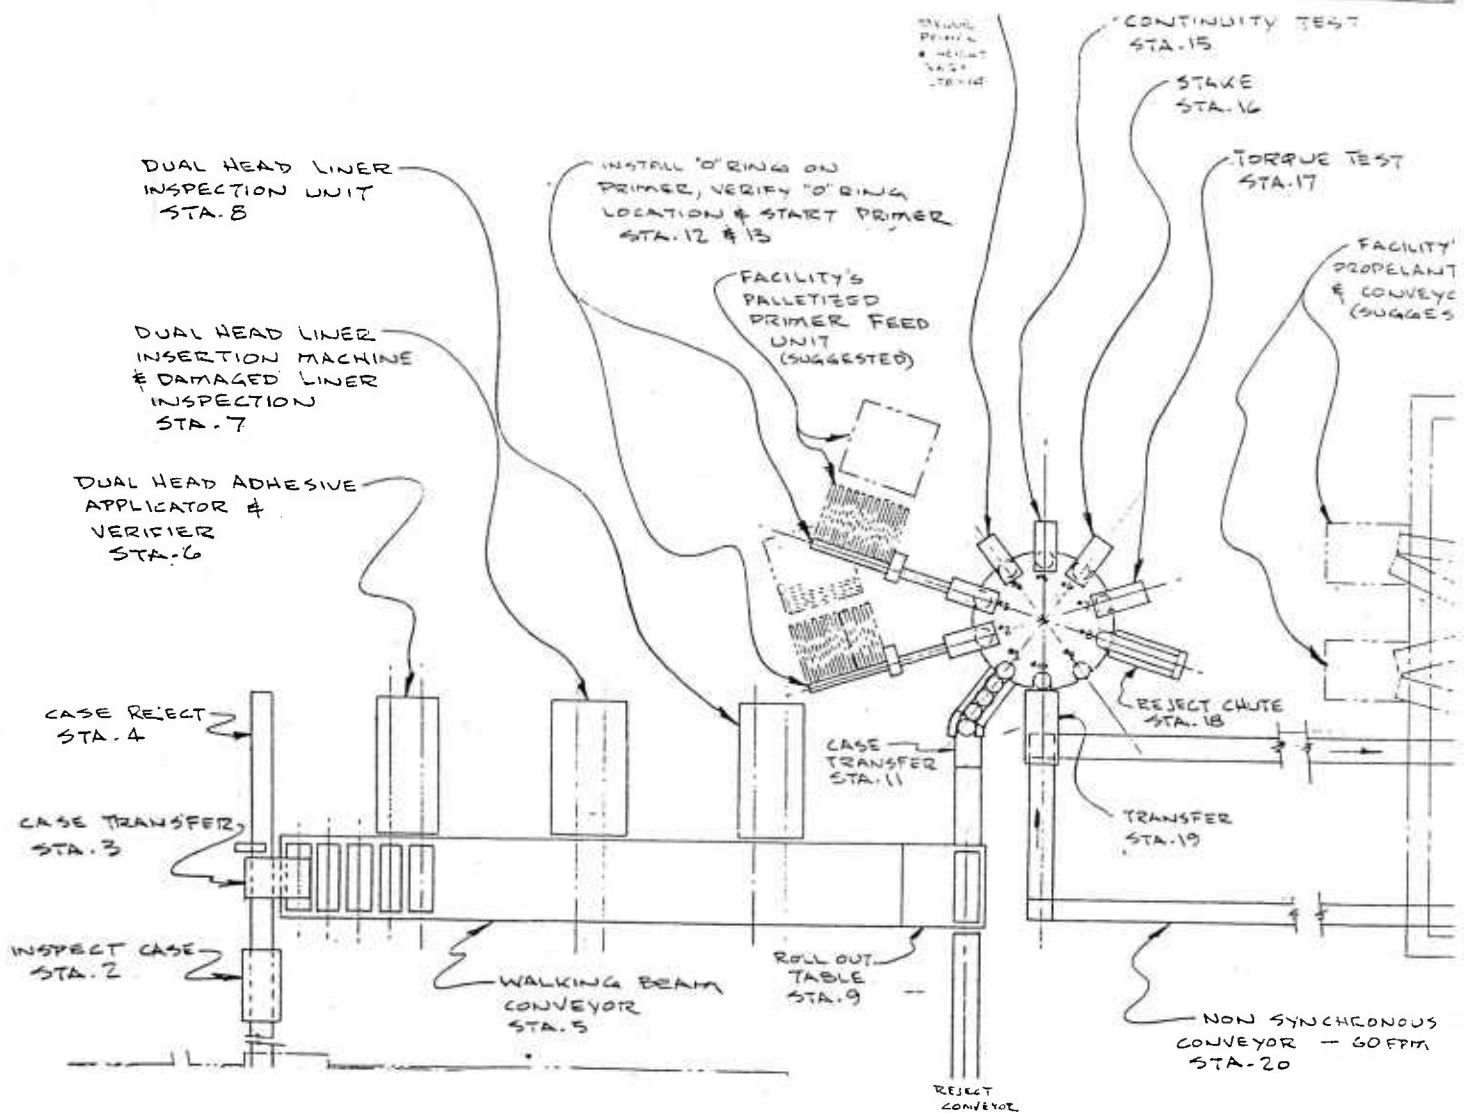 CONTINUITY TEST
STA.15
STAKE
STA.16
TORQUE TEST
STA.17
DUAL HEAD LINER
INSPECTION UNIT
STA.8
INSTALL "O" RING ON
PRIMER, VERIFY "O" RING
LOCATION & START PRIMER
STA.12 & 13
FACILITY'S
PALLETIZED
PRIMER FEED
UNIT
(SUGGESTED)
FACILITY'
PROPELANT
& CONVEYO
(SUGGES
DUAL HEAD LINER
INSERTION MACHINE
& DAMAGED LINER
INSPECTION
STA.7
DUAL HEAD ADHESIVE
APPLICATOR &
VERIFIER
STA.6
CASE REJECT
STA.4
CASE TRANSFER
STA.3
INSPECT CASE
STA.2
WALKING BEAM
CONVEYOR
STA.5
ROLL OUT
TABLE
STA.9
CASE
TRANSFER
STA.11
REJECT CHUTE
STA.18
TRANSFER
STA.19
NON SYNCHRONOUS
CONVEYOR - 60 FPM
STA-20
REJECT
CONVEYOR